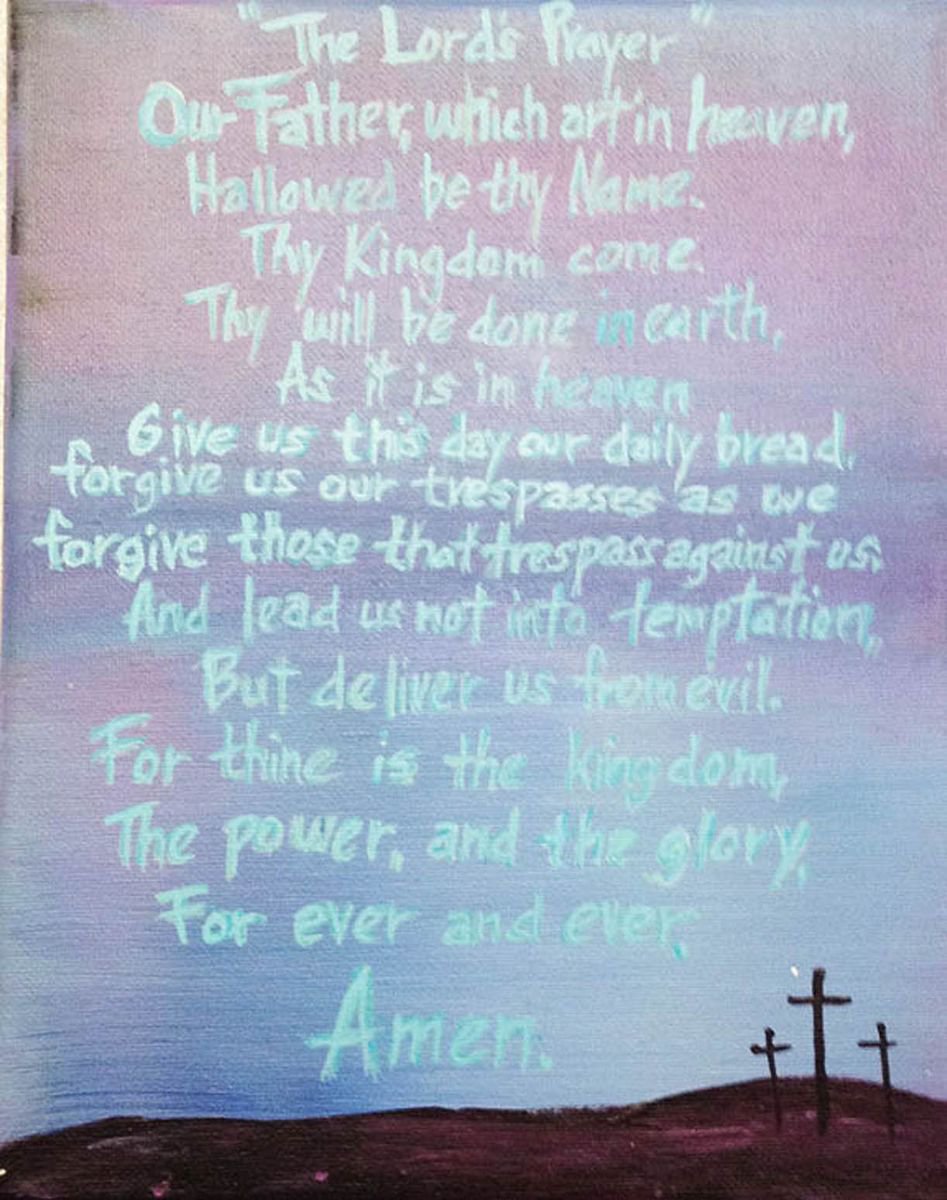 "The Lord's Prayer"
Our Father, which art in heaven,
Hallowed be thy Name.
Thy Kingdom come.
Thy will be done in earth,
As it is in heaven
Give us this day our daily bread,
forgive us our trespasses as we
forgive those that trespass against us.
And lead us not into temptation,
But deliver us from evil.
For thine is the kingdom,
The power, and the glory,
For ever and ever,
Amen.